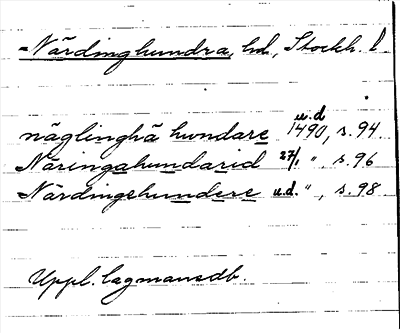 Närdinghundra, hd, Stockh. l
näglinghä hundare u.d 1490, s. 94
Näringahundarid 27/1 ", s. 96
Närdingehundere u.d. ", s. 98
Uppl. lagmansdb.